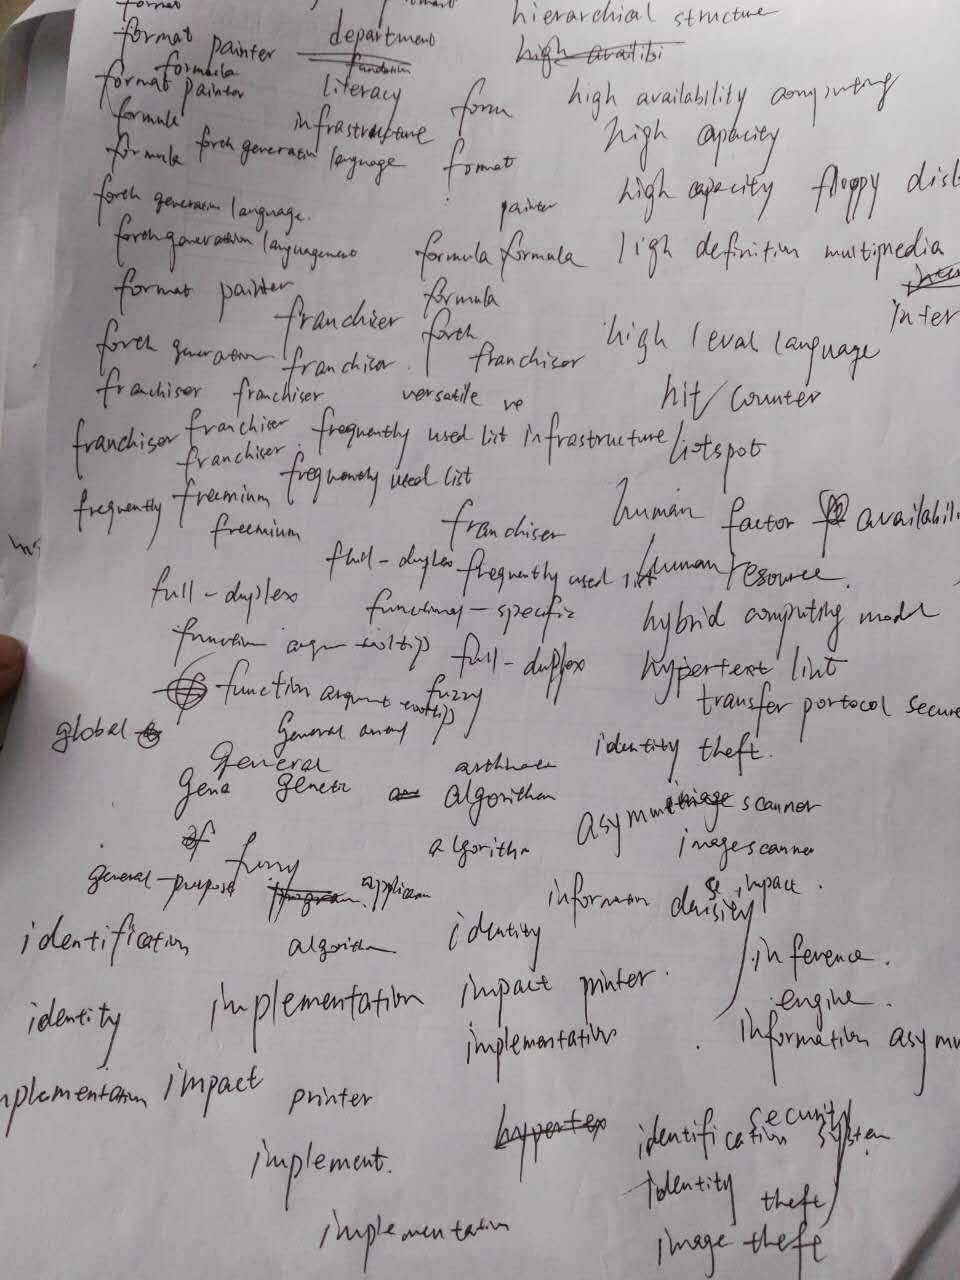 format
hierarchical structure
format painter department
high availibi
formula
format painter literacy form high availability computing
formula infrastructure high capacity
formula forth generation language format
forth generation language. painter high capacity floppy
forth generation languagement formula formula high definition multimedia
format painter formula
franchiser forth inter
forth generation franchisor. franchisor high leval language
franchiser franchiser versatile ve hit/counter
franchisor franchiser frequently used list infrastructure hotspot
franchiser frequently used list
frequently freemium human factor availabili
freemium franchiser
full-duplex frequently used list human resource.
full-duplex functional-specific hybrid computing model
function full-duplex hypertext
function argument fuzzy transfer portocol secure
global general array
general identity theft.
gena genetic algorithm asymm image scanner
algorithm image scanner
of fuzzy
general-purpose program impact.
information
identification algorithm identity inference.
identity implementation impact printer. engine.
implementation information asymm
implementation impact printer
hypertex security
implement. identification system
identity theft
implementation image theft